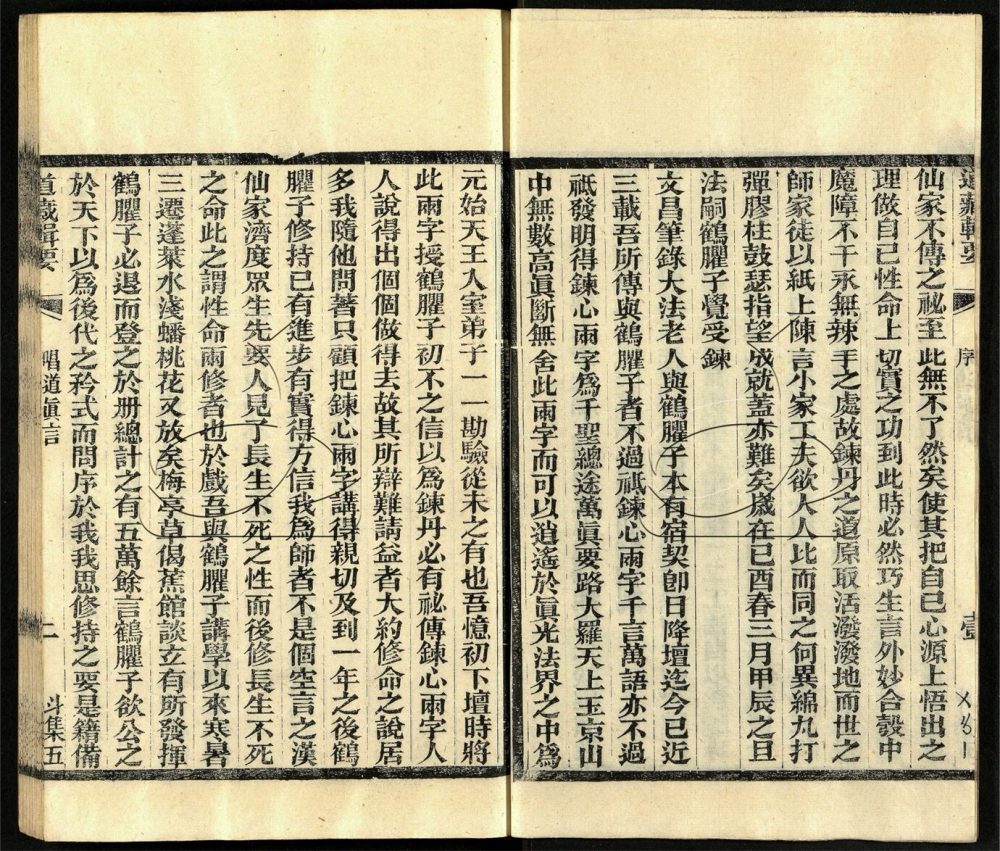 道藏輯要
序
壹
仙家不傳之祕至此無不了然矣使其把自己心源上悟出之
理做自己性命上切實之功到此時必然巧生言外妙合彀中
魔障不干永無辣手之處故鍊丹之道原取活潑潑地而世之
師家徒以紙上陳言小家工夫欲人人比而同之何異綿丸打
彈膠柱鼓瑟指望成就蓋亦難矣歲在已酉春三月甲辰之旦
法嗣鶴臞子覺受鍊
文昌筆錄大法老人與鶴臞子本有宿契卽日降壇迄今已近
三載吾所傳與鶴臞子者不過祇鍊心兩字千言萬語亦不過
祇發明得鍊心兩字爲千聖總途萬眞要路大羅天上玉京山
中無數高眞斷無舍此兩字而可以逍遙於眞光法界之中爲
元始天王入室弟子一一勘驗從未之有也吾憶初下壇時將
此兩字授鶴臞子初不之信以爲鍊丹必有祕傳鍊心兩字人
人說得出個個做得去故其所辯難請益者大約修命之說居
多我隨他問著只顧把鍊心兩字講得親切及到一年之後鶴
臞子修持已有進步有實得方信我爲師者不是個空言之漢
仙家濟度眾生先要人見了長生不死之性而後修長生不死
之命此之謂性命兩修者也於戲吾與鶴臞子講學以來寒暑
三遷蓬萊水淺蟠桃花又放矣梅亭草偈蕉館談立有所發揮
鶴臞子必退而登之於册總計之有五萬餘言鶴臞子欲公之
於天下以爲後代之矜式而問序於我我思修持之要是籍備
道藏輯要
唱道眞言
二
斗集五